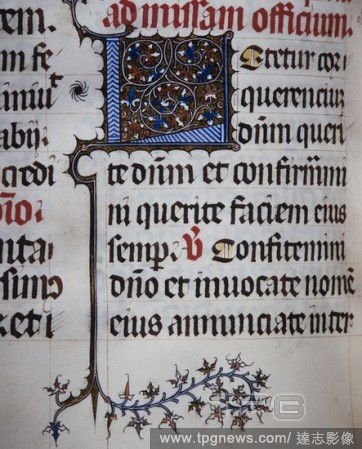 rem.
m fe
iniu
abij
credi
nta
simo
et i
ad missam officium.
etetur cor
querenciu
dñm queri
te dñm et confirmĩ
ni querite faciem eius
semp. V Confitemini
dño et inuocate nomẽ
eius annunciate inter
www.tpgnews.com/ 達志影像